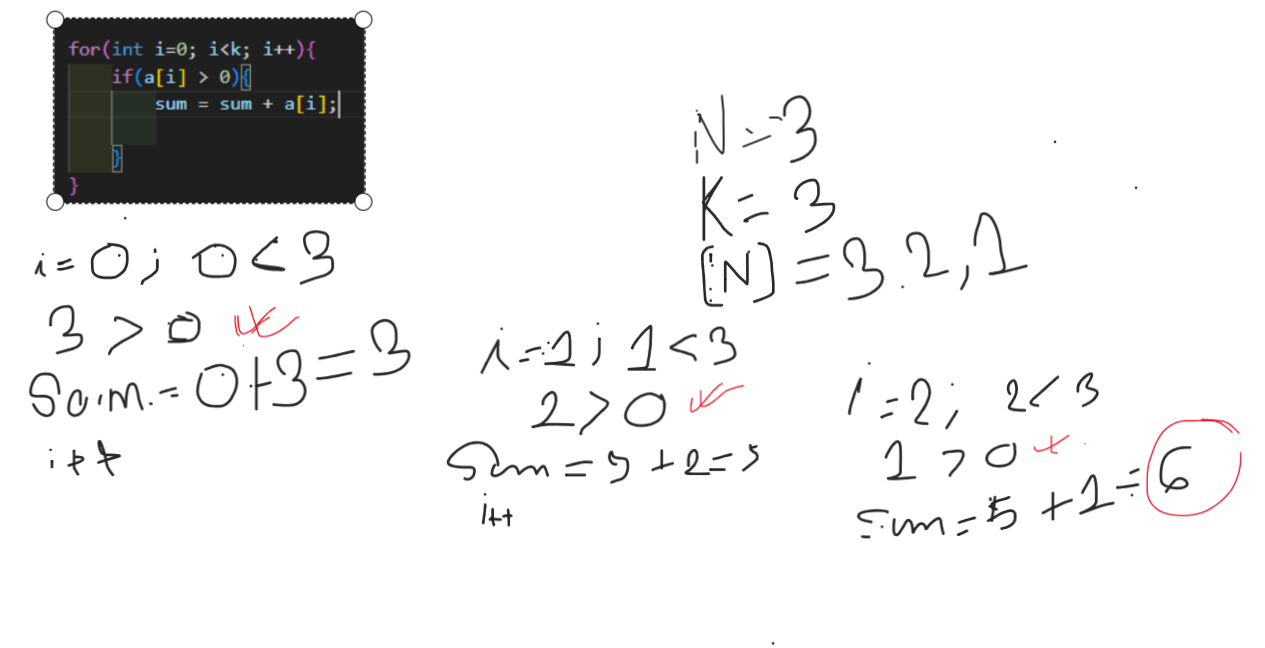 for(int i=0; i<k; i++){
if(a[i] > 0){
sum = sum + a[i];
}
}
N=3
K=3
[N]=3.2,1
i=0; 0<3
3>0
Sum.=0+3=3
i++
i=1; 1<3
2>0
Sum=3+2=5
i++
i=2; 2<3
1>0
Sum=5+1=6